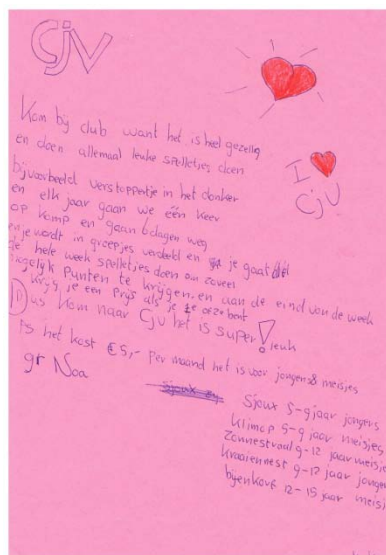 CJV
Kom bij club want het is heel gezellig
en doen allemaal leuke spelletjes doen
bijvoorbeeld verstoppertje in het donker
en elk jaar gaan we één keer
op kamp en gaan 6 dagen weg
en je wordt in groepjes verdeeld en je gaat
de hele week spelletjes doen om zoveel
mogelijk punten te krijgen. en aan de eind van de week
krijg je een prijs als je 1e of 2e bent
Dus kom naar CJV het is super! leuk
PS het kost €5,- Per maand het is voor jongens & meisjes
gr Noa
I
CJV
Sjoux 5-9 jaar jongens
Klimop 5-9 jaar meisjes
Zonnestraal 9-12 jaar meisje
Kraaiennest 9-12 jaar jonge
bijenkorf 12-15 jaar meisj